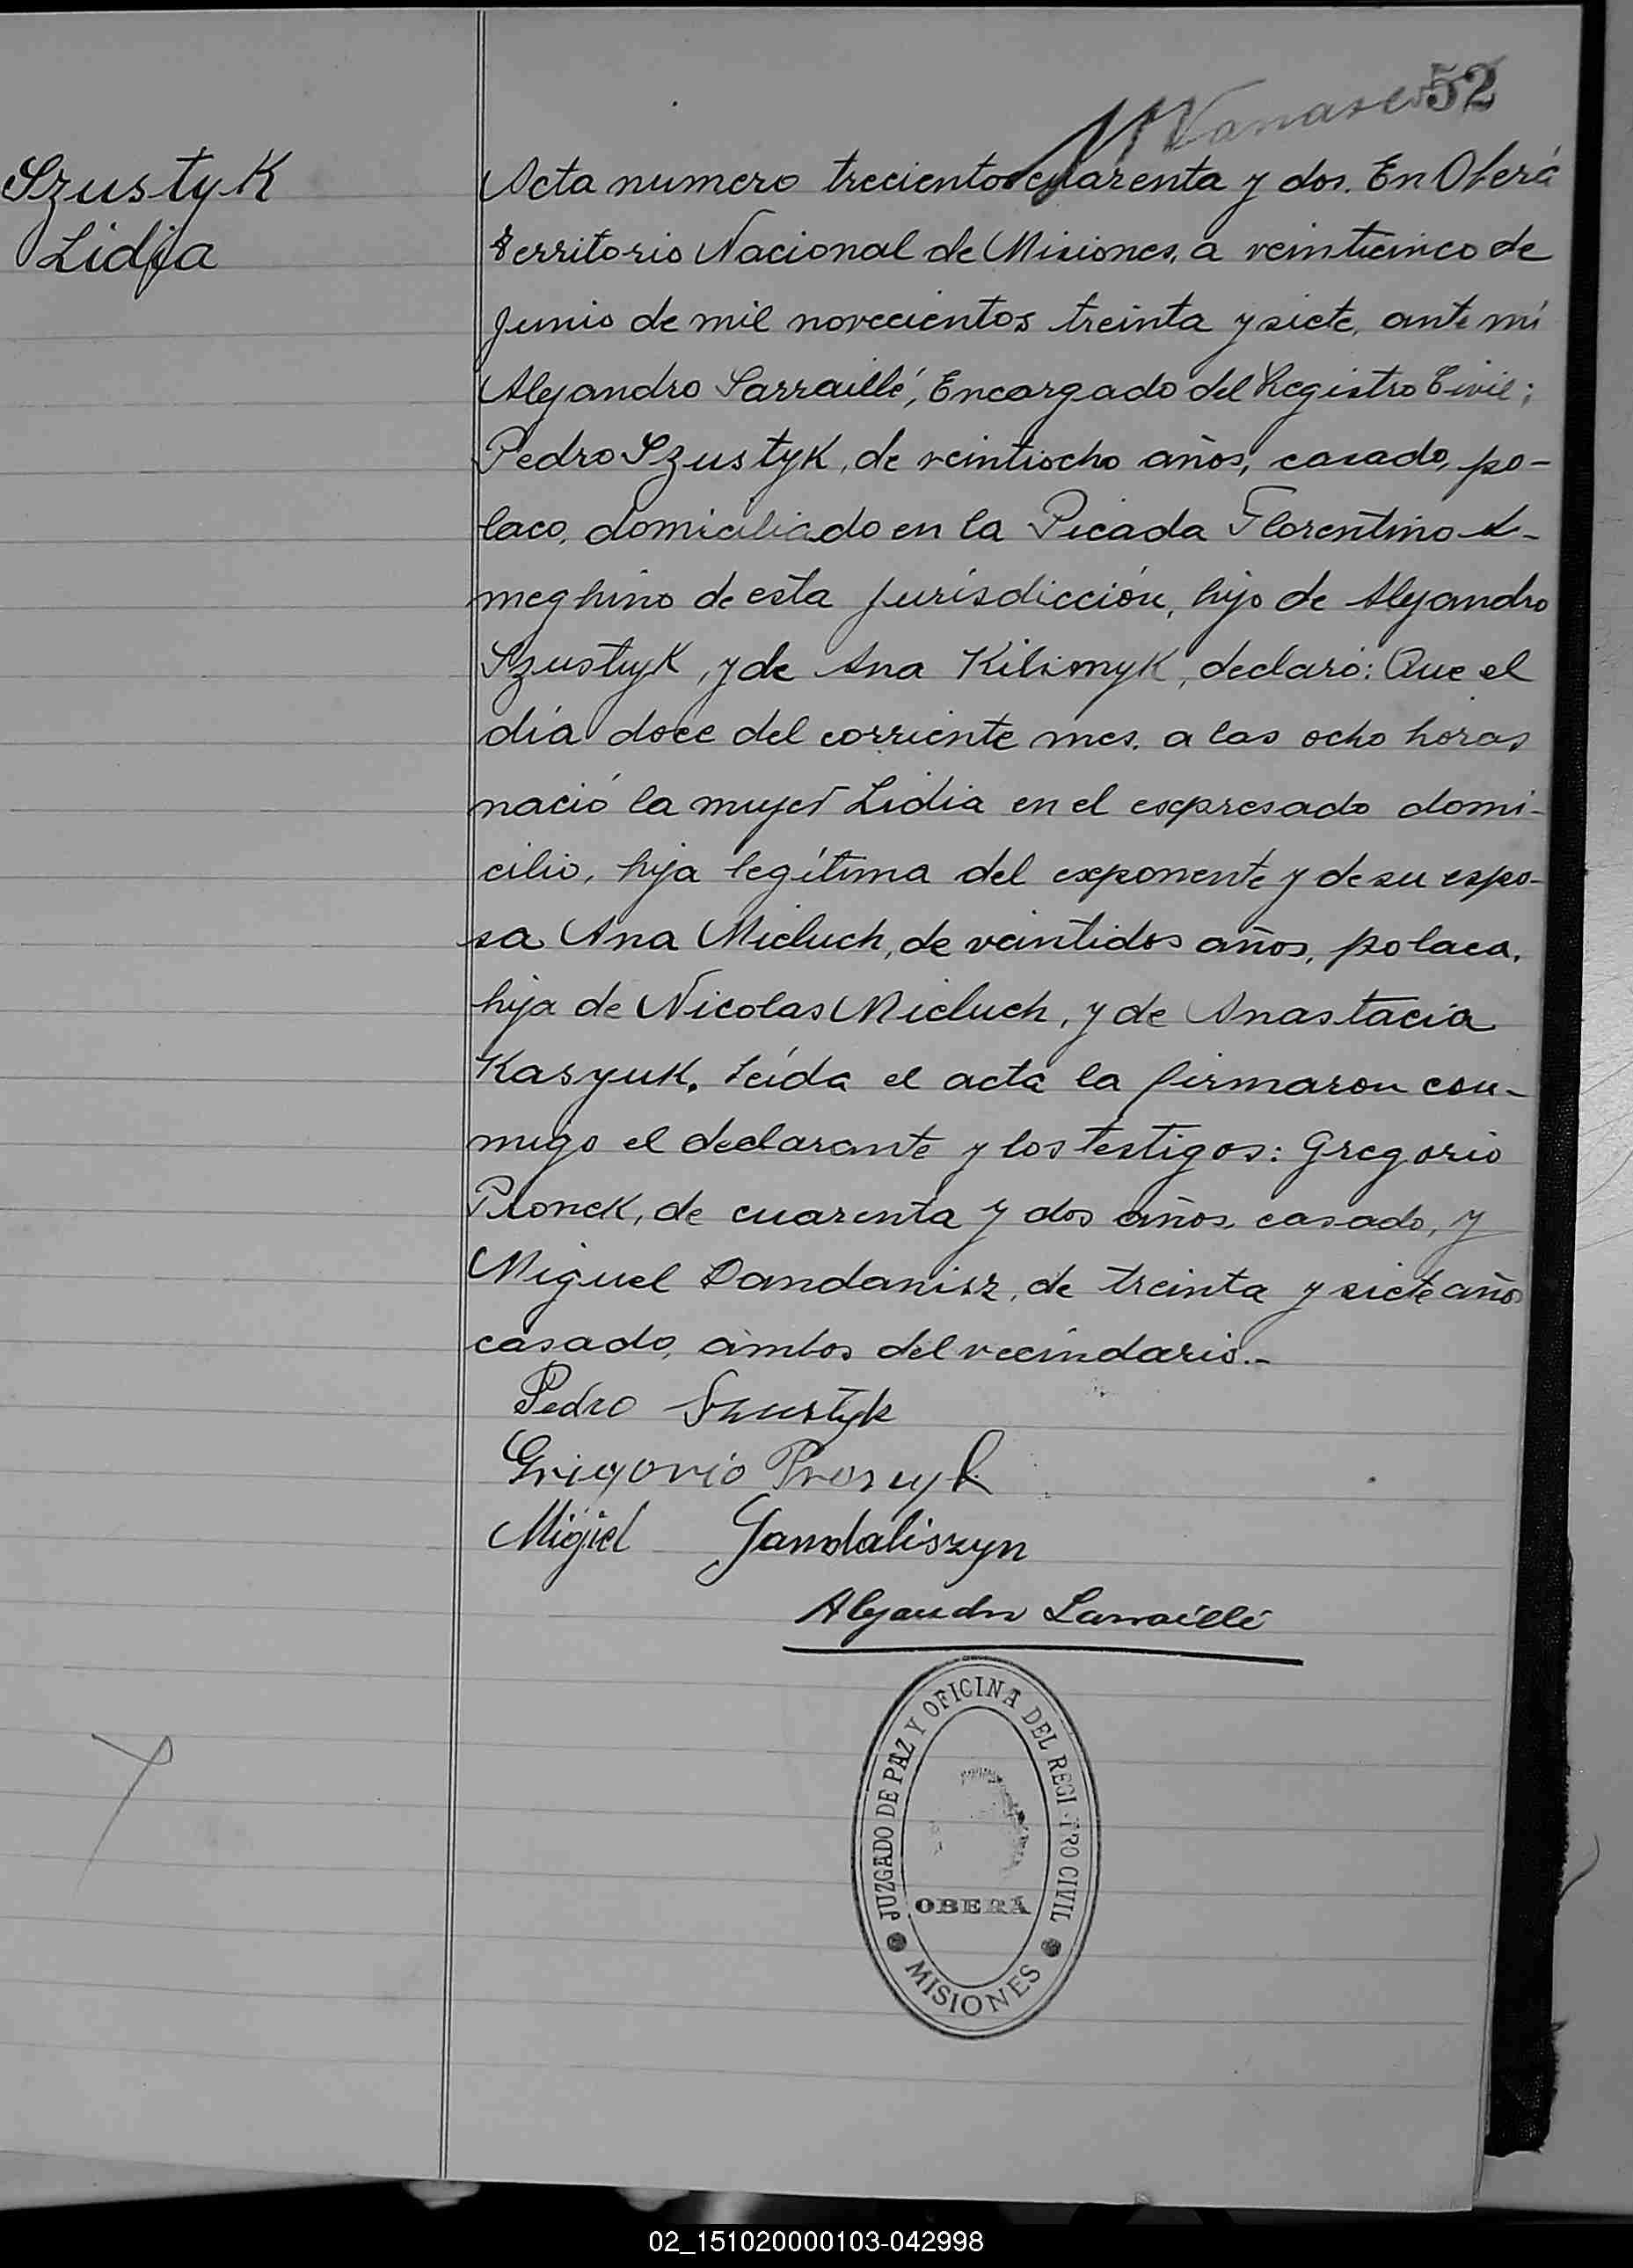 52
Szustyk
Lidja
Acta numero trecientos cuarenta y dos. En Oberá
territorio Nacional de Misiones, a veinticinco de
Junio de mil novecientos treinta y siete, ante mi
Alejandro Sarraillé, Encargado del Registro Civil;
Pedro Szustyk, de veintiocho años, casado, po-
laco, domiciliado en la Picada Florentino A-
meghino de esta jurisdicción, hijo de Alejandro
Szustyk, y de Ana Kilimyk, declaró: Que el
día doce del corriente mes, a las ocho horas
nació la mujer Lidia en el expresado domi-
cilio, hija legítima del exponente y de su espo-
sa Ana Micluch, de veintidos años, polaca,
hija de Nicolas Micluch, y de Anastacia
Kasyuk. Leída el acta la firmaron con-
migo el declarante y los testigos: Gregorio
Pronek, de cuarenta y dos años, casado, y
Miguel Dandanisz, de treinta y siete años
casado, ambos del vecindario.-
Pedro Szustyk
Grigorio
Migiel Gandaliszyn
Alejandro Sarraillé
JUZGADO DE PAZ Y OFICINA DEL REGI TRO CIVIL
OBERÁ
MISIONES
02_151020000103-042998